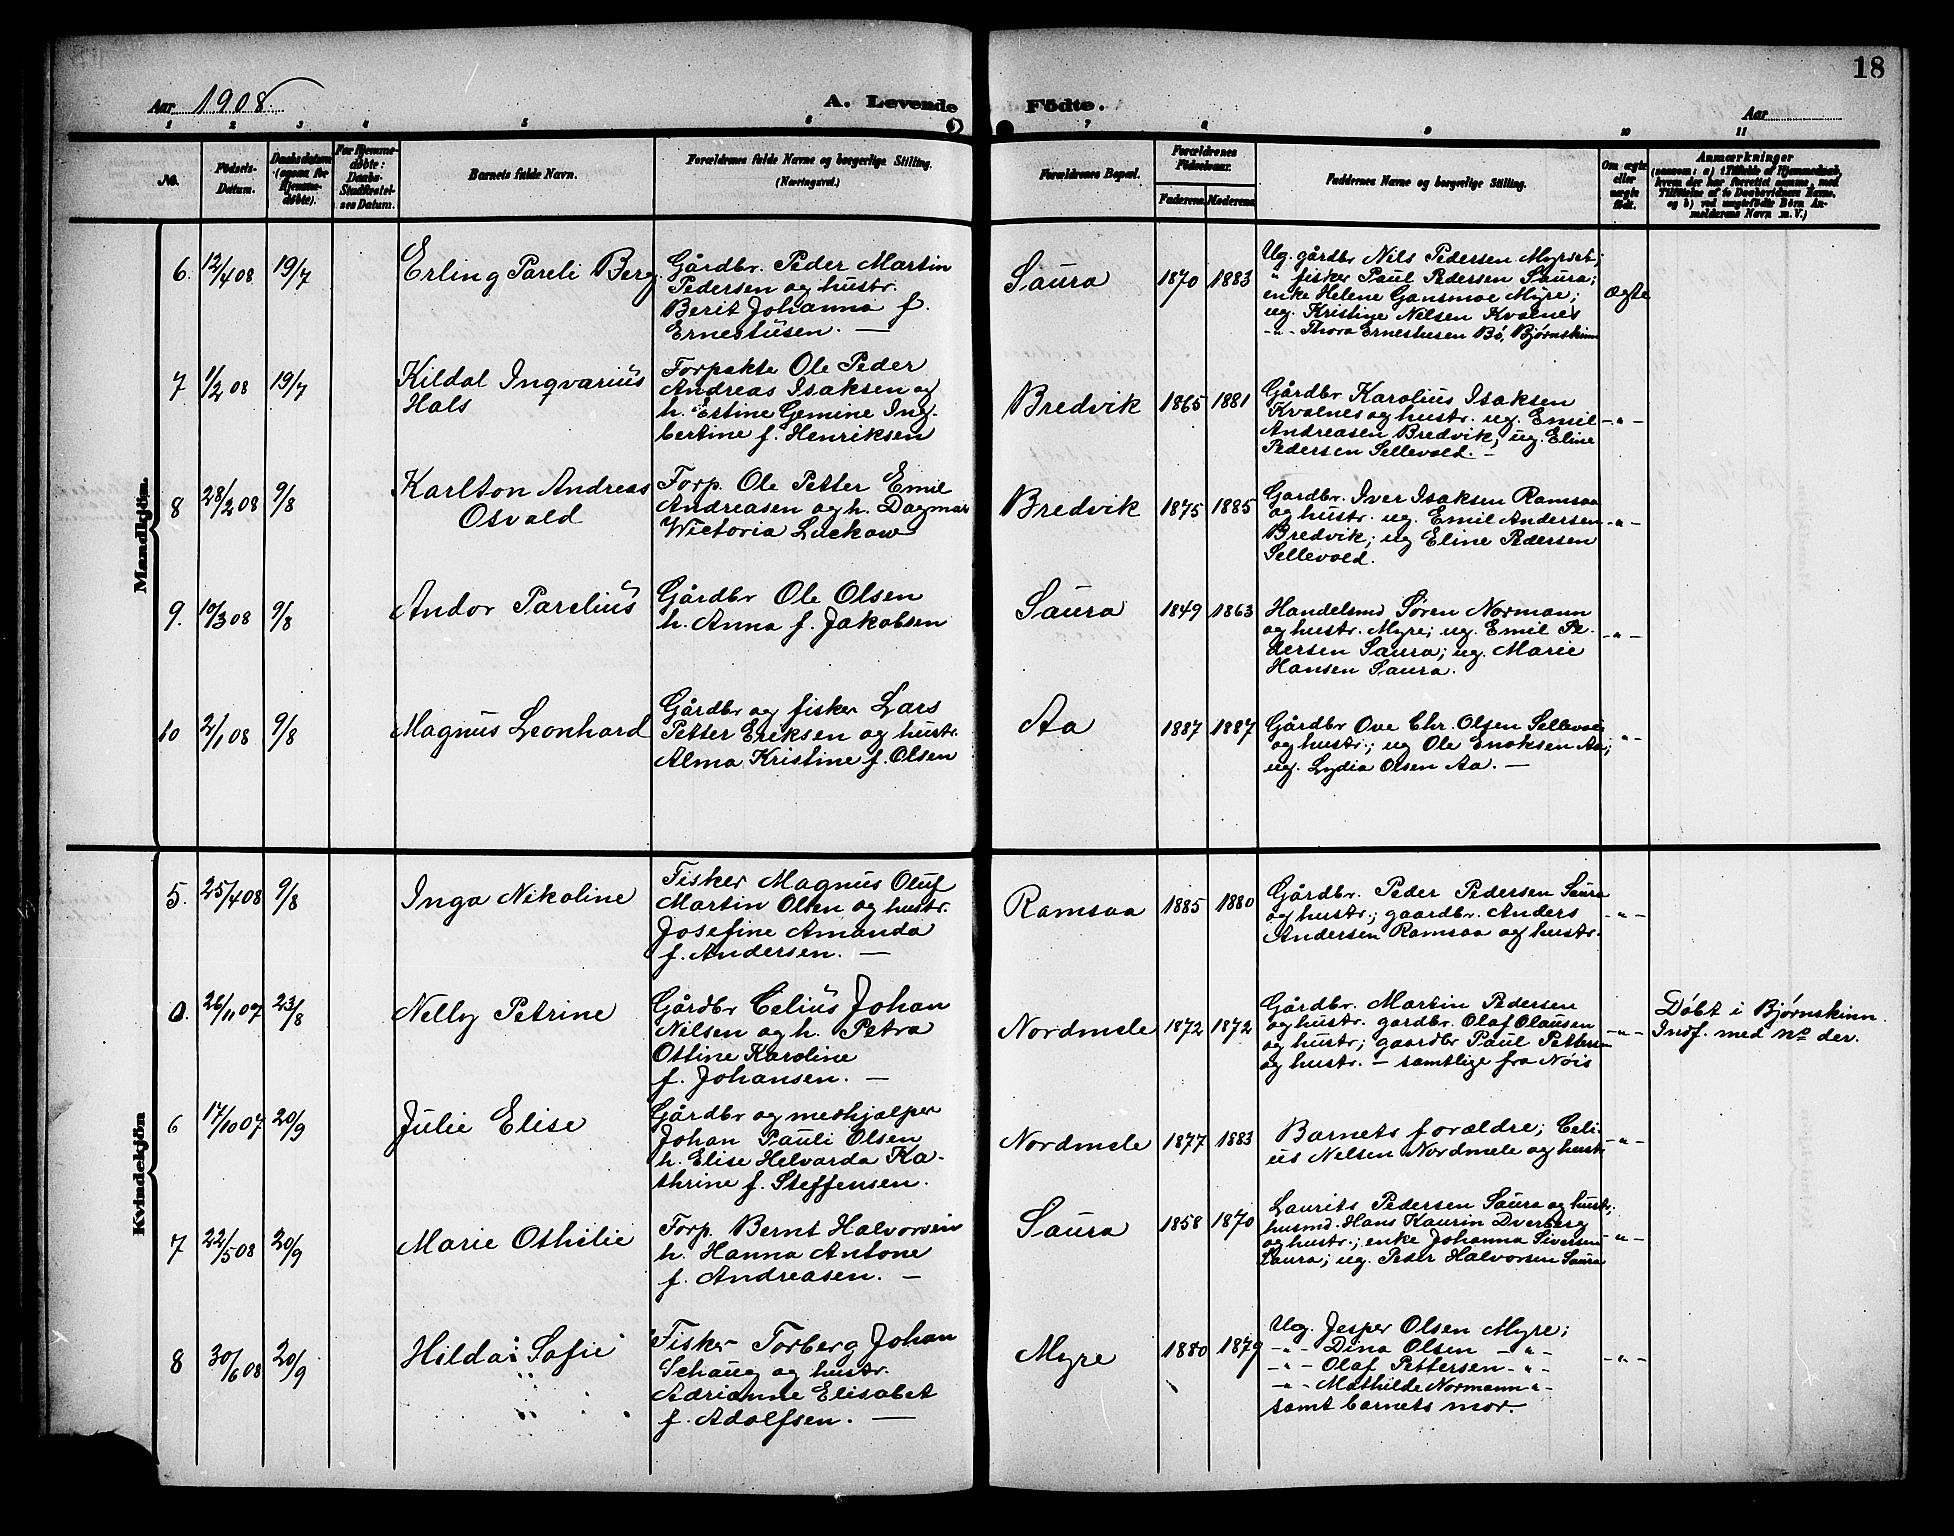 18
Aar 1908.
A. Levende Födte.
Aar
1 2 3 4 5 6 7 8 9 10 11
No.
Födsels-
Datum.
Daabsdatum
(ogsaa for
Hjemme-
döbte).
For Hjemme-
döbte:
Daabs-
Stadfæstel-
ses Datum.
Barnets fulde Navn.
Forældrenes fulde Navne og borgerlige Stilling.
(Næringsvei.)
Forældrenes Bopæl.
Forældrenes
Födselsaar.
Faderens. Moderens.
Faddernes Navne og borgerlige Stilling.
Om ægte
eller
uægte
födt.
Anmærkninger
(saasom: a) i Tilfælde af Hjemmedaab,
hvem der har forrettet samme, med
Tilföielse af to Daabsvidners Navne,
og b) ved uægtefödte Börn An-
melderens Navn m. V.)
Mandkjön.
6. 12/4 08 19/7
Erling Pareli Berg
Gårdbr. Peder Martin
Pedersen og hustr.
Berit Johanna f.
Ernestüsen. —
Saura 1870 1883
Ug. gårdbr Nils Pedersen Myrset;
" fisker Paul Pedersen Saura;
enke Helene Gansmoe Myre;
ug. Kristine Nilsen Kvalnes
-"- Thora Ernestusen Bö, Bjørnskinn
Ægte
7 1/2 08 19/7
Kildal Ingvariüs
Hals
Forpakte Ole Peder
Andreas Isaksen og
h. Estine Gemine Ing-
bertine f. Henriksen
Bredvik 1865 1881
Gårdbr Karolius Isaksen
Kvalnes og hustr. ug. Emil
Andreasen Bredvik; ug. Eline
Pedersen Sellevold. —
-"-
8 28/2 08 9/8
Karlton Andreas
Osvald
Forp. Ole Petter Emil
Andreasen og h. Dagmar
Wictoria Luckow
Bredvik 1875 1885
Gardbr. Iver Isaksen Ramsaa
og hustr. ug. Emil Andersen
Bredvik; ug Eline Pedersen
Sellevold.
-"-
9. 10/3 08 9/8
Andor Pareliüs
Gårdbr Ole Olsen
h. Anna f. Jakobsen
Saura 1849 1863
Handelsmd Søren Normann
og hustr. Myre; ug. Emil Pe-
dersen Saura; ug. Marie
Hansen Saura.
-"-
10 2/1 08 9/8
Magnus Leonhard
Gårdbr og fisker Lars
Petter Eriksen og hustr.
Alma Kristine f. Olsen
Aa 1887 1887
Gårdbr Ove Chr. Olsen Sellevold
og hustr.; ug Ole Enoksen Aa;
ug. Lydia Olsen Aa. —
-"-
Kvindekjön
5. 25/4 08 9/8
Inga Nikoline
Fisker Magnus Oluf
Martin Olsen og hustr.
Josefine Amanda
f. Andersen. —
Ramsaa 1885 1880
Gårdbr. Peder Pedersen Saura
og hustr.; gaardbr. Anders
Andersen Ramsaa og hustr.
-"-
0. 26/11 07 23/8
Nelly Petrine
Gårdbr Celiüs Johan
Nilsen og h. Petra
Ottine Karoline
f. Johansen. —
Nordmele 1872 1872
Gårdbr. Martin Pedersen
og hustr. gardbr. Olaf Olausen
og hustr; gaardbr Paul Pettersen
og hustr. — samtlige fra Nöis
-"-
Döbt i Bjørnskinn.
Indf. med no der.
6 17/10 07 20/9
Julie Elise
Gårdbr og meshjælper
Johan Pauli Olsen
h. Elise Helvarda Ka-
thrine f. Steffensen.
Nordmele 1877 1883
Barnets forældre; Celi-
us Nelsen Nordmele og hustr
-"-
7 22/5 08 20/9
Marie Othilie
Forp. Bernt Halvorsen
h. Hanna Antone
f. Andreasen. —
Saura 1858 1870
Laurits Pedersen Saura og hustr;
husmd. Hans Kaurin Dverberg
og hustr.; enke Johanna Siversen
Saura; ug. Peder Halvorsen Saura
-"-
8 30/6 08 20/9
Hilda Sofie
Fisker Torberg Johan
Schaug og hustr.
Adrianne Elisabet
f. Adolfsen. —
Myre 1880 1879
Ug. Jesper Olsen Myre;
-"- Dina Olsen -"-
-"- Olaf Pettersen -"-
-"- Mathilde Normann -"-
samt barnets mor.
-"-